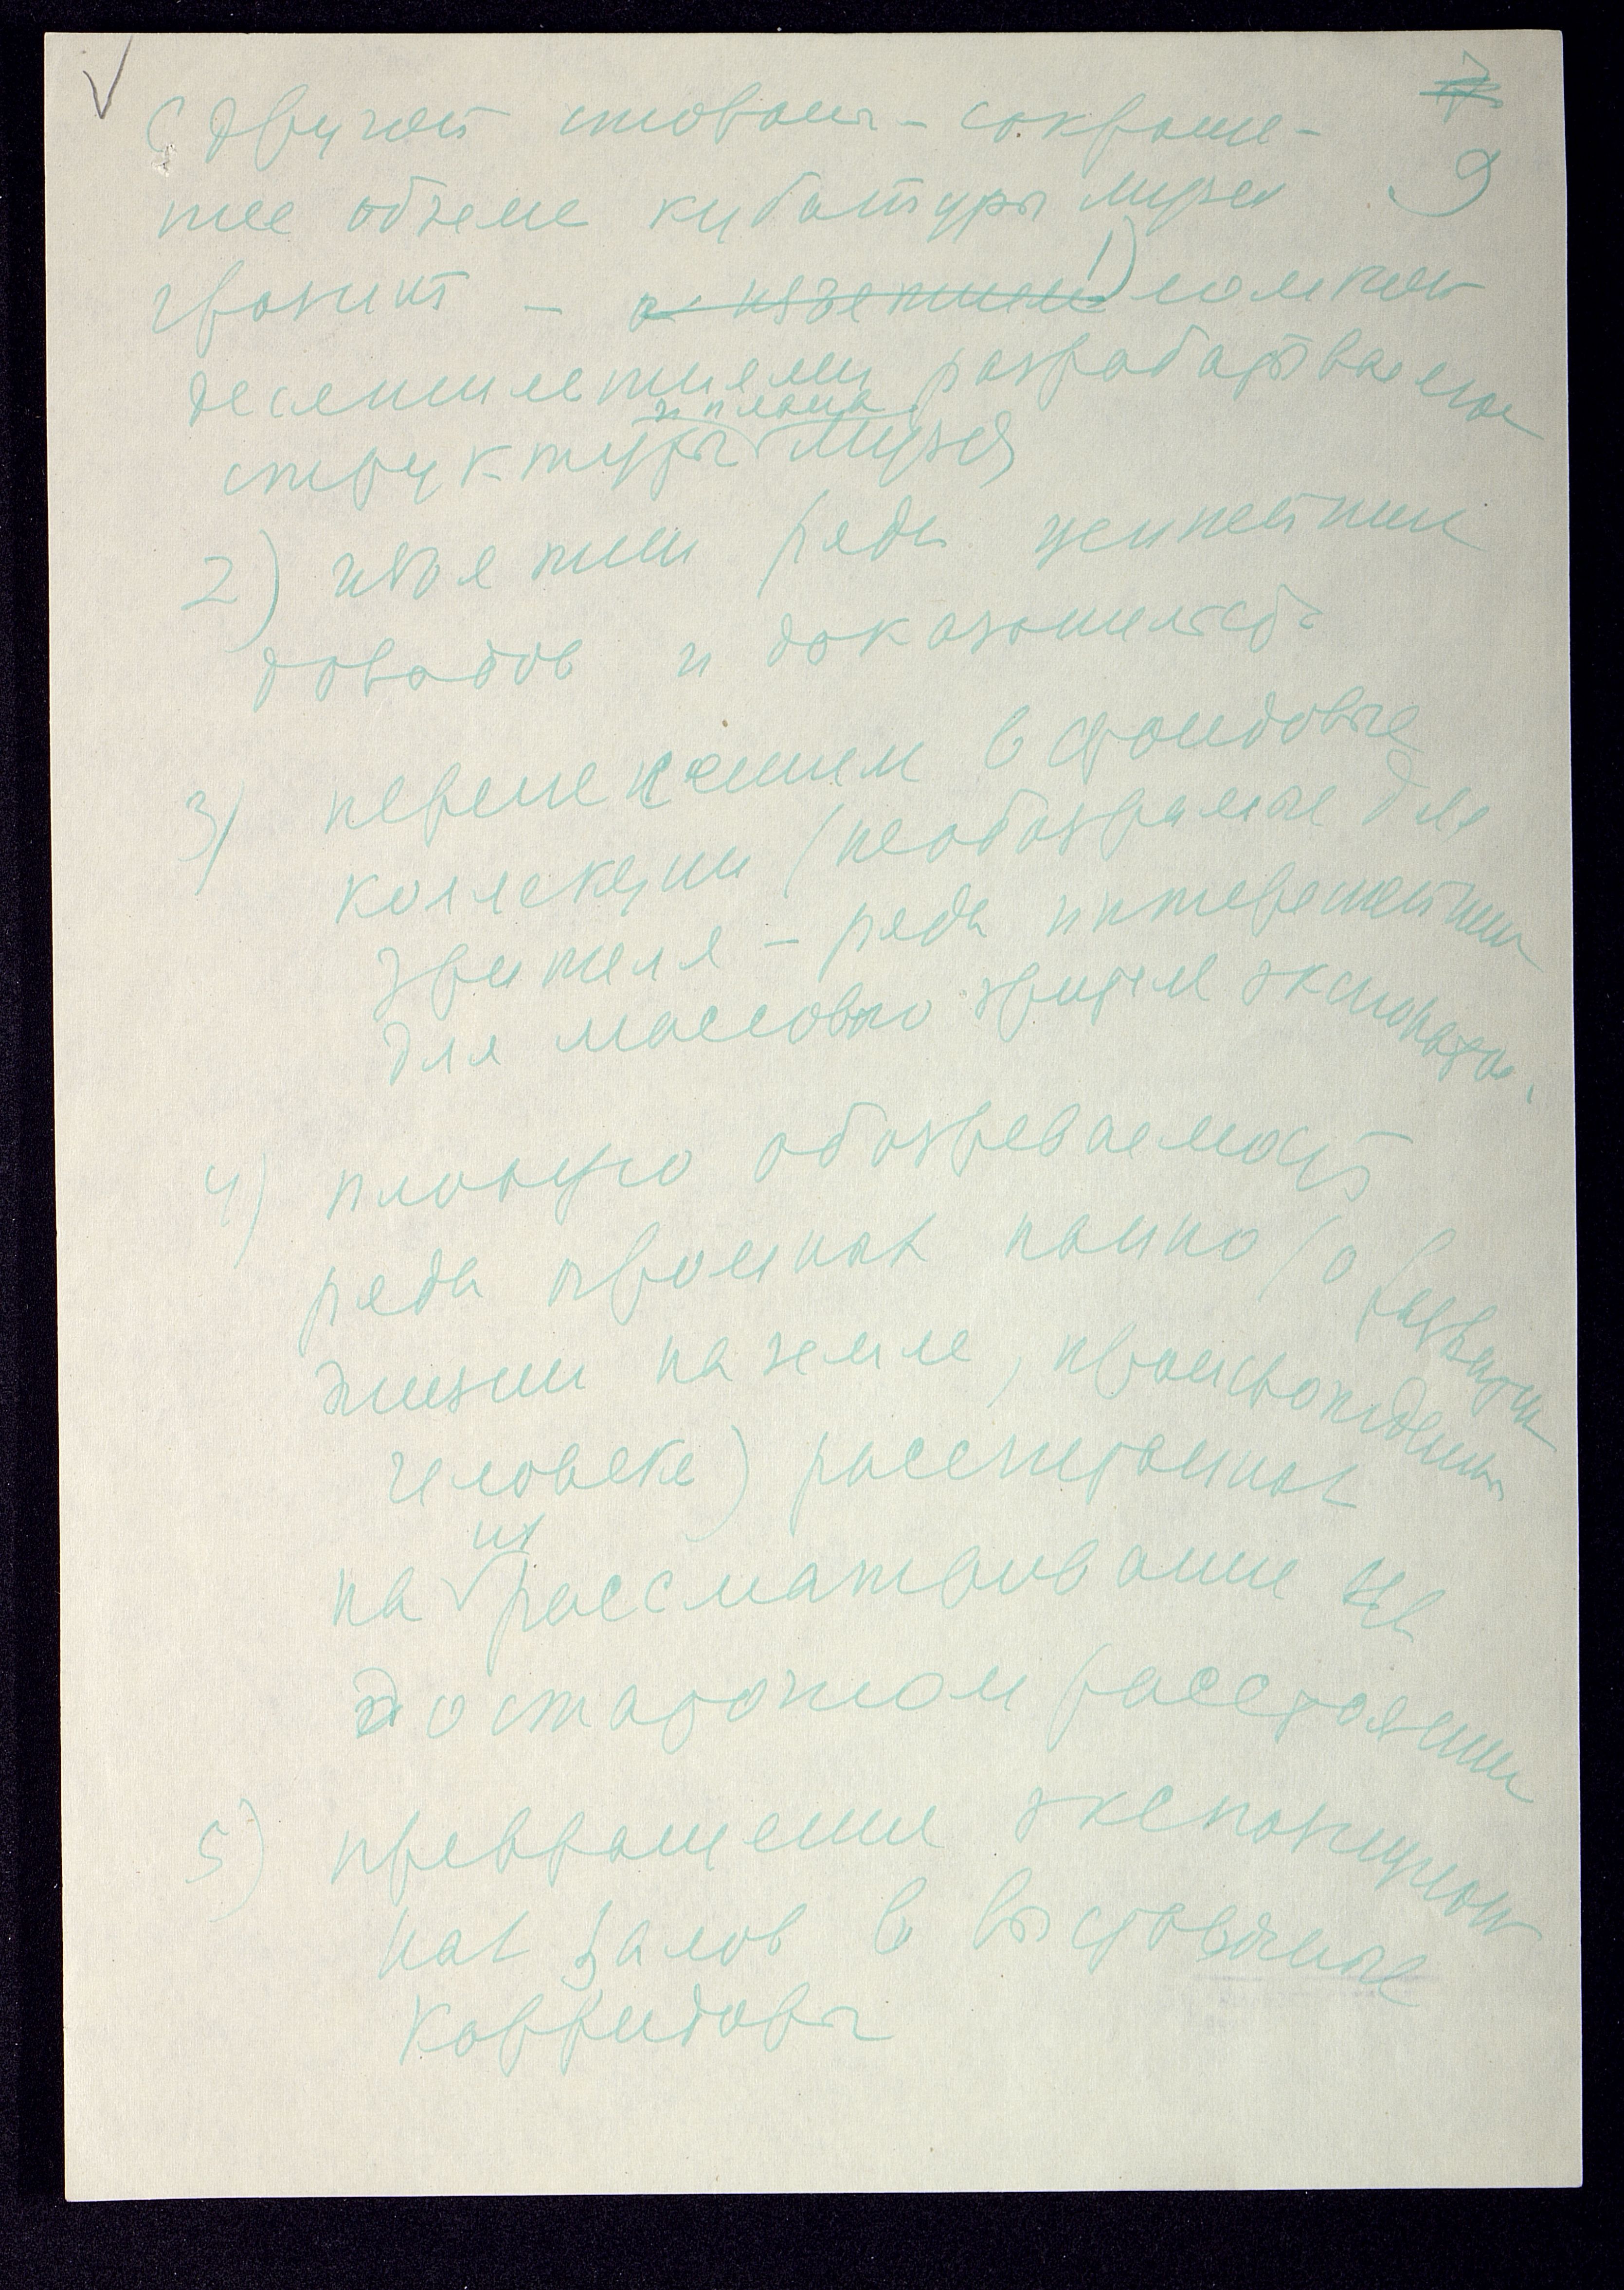 7
9
С другой стороны - сокраще-
ние объема кубатуры музея
грозит - а изъятием 1) ломкой
десятилетиями разрабатываемой
и плана
структуры музея
2) изъятии ряда ценнейших
доводов и доказательств
3) перенесением в фондовые
коллекции (необозримые для
зрителя - ряда интереснейших
для массового зрителя экспонатов.
4) плохую обозреваемость
ряда громадных панно (о развитии
жизни на земле, происхождении
человека) рассчитанных
их
на рассматривание на
достаточном расстоянии
5) превращение экспозицион
ных залов в выставочные
корридоры